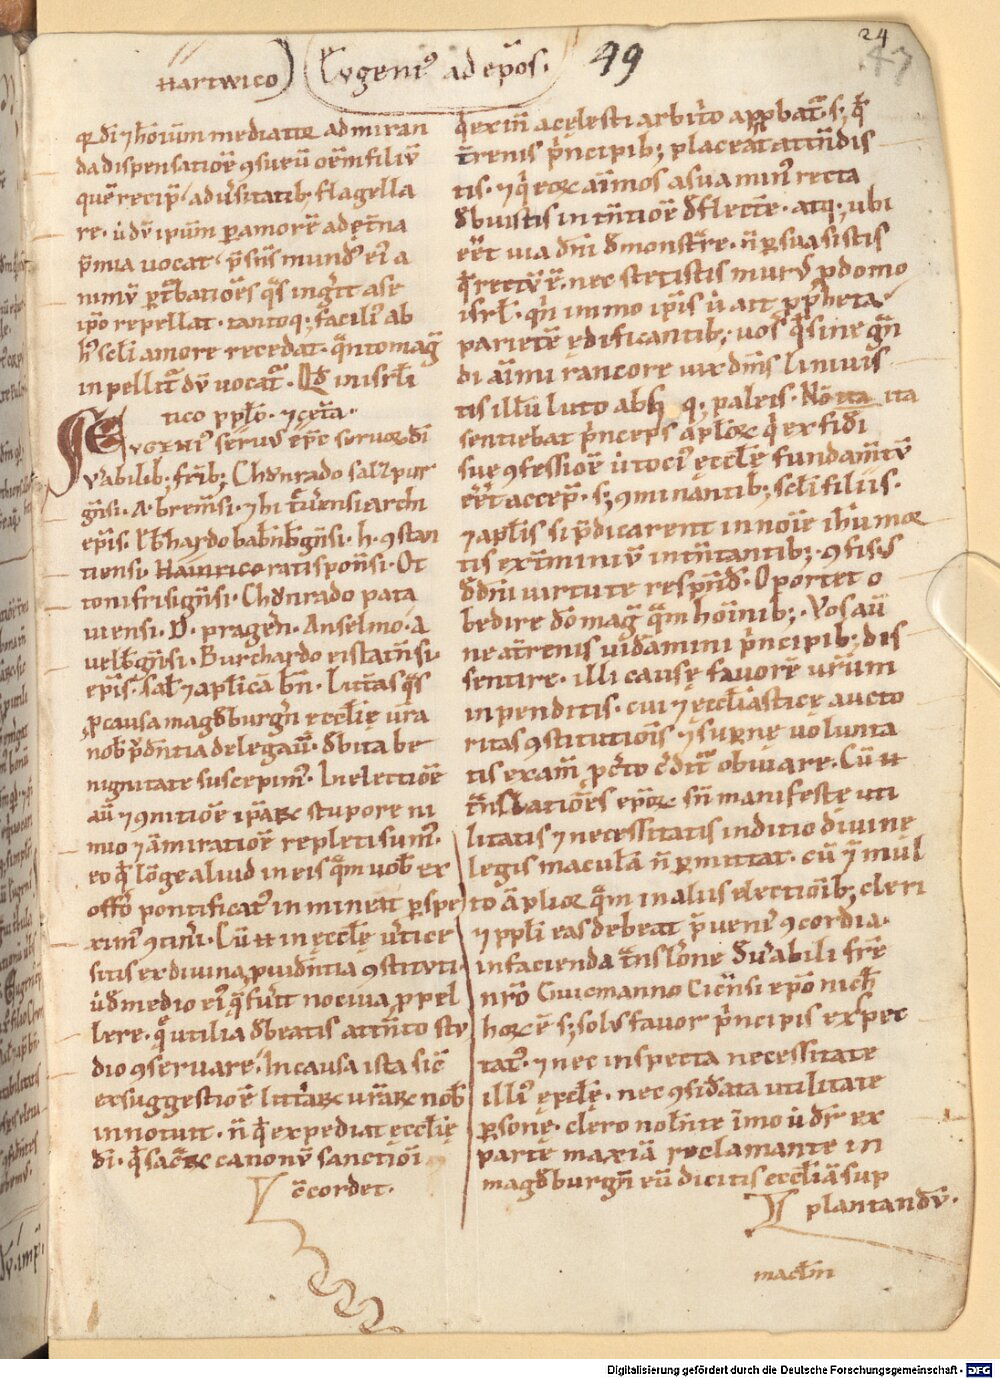 HARTWICO) (Evgeni⁹ ad ep̄os. 49
24
47
qꝛ dī ⁊ hoīum mediatꝛ admiran
da dispensatiōe ꝯsueuū oēm filiū
quē recip̄ aduˀsitatib; flagella
re. ū dū ipūm ꝑ amorē ad et̄na
p̄mia uocat. p̄sētis mundꝰ eiꝰ a
nimū ꝑt̄batiōes q̄s ingˀit a se
ip̄o repellat. tantoq; faciliꝰ ab
hꝰ scl̄i amore recedat. q̄nto magꝭ
inpellit̄ dū uocat̄. Qd̄ in isrl̄i
tico ppl̄o. ⁊ cet̄a.
Evgeniꝰ seruus ep̄c seruoꝝ dī
uˀabilib; fr̄ib; Chŏnrado salzpur
gn̄si. A. bremn̄si. ⁊ hi t̄uˀensi archi
ep̄is. eb̄hardo bab̄nb̄gn̄si. h. ꝯstan
tiensi. Hainrico ratisponn̄si. Ot
toni frisign̄si. Chŏnrado pata
uiensi. D. pragēn. Anselmo. a
uelb̄gn̄si. Burchardo eistatn̄si.
ep̄is. sal̄ ⁊ apl̄icā bn̄. Litt̄as q̄s
ꝓ causa magd̄burgn̄ eccl̄ię ur̄a
nob̄ p̄dn̄tia delegauit. d̄bita be
nignitate suscepimꝰ. In electiōe
aū ⁊ ꝯnitiōe ip̄aꝝ stupore ni
mio ⁊ āmiratiōe repleti sumꝰ.
eo q̄ lōge aliud in eis q̄m uob̄ ex
offō pontificatꝰ inminet ꝑspe
ximꝰ ꝯtinˀi. Cū .n. in ęccl̄ę uˀtice
sitis ex diuina ꝓuidn̄tia ꝯstituti.
ū d̄ medio eiꝰ q̄ fuˀit nociua ꝓpel
lere. q̄ utilia d̄beatis attn̄to stu
dio ꝯseruare. In causa ista sic̄
ex suggestiōe litt̄aꝝ ur̄aꝝ nob̄
innotuit. n̄ q̄ expediat ęccl̄ię
dī. q̄ sac̄ꝝ canonū sanctiōi
c̄cordet.
q̄ ex inn̄ a cęlesti arbitˀo app̄bat̄. s; q̄
t̄renis p̄ncipib; placeat attn̄dis
tis. ⁊ q̄ eoꝝ aīmos a sua minꝰ recta
d̄buistis intn̄tiōe d̄flectˀe. atq; ubi
eēt uia dnī d̄monstr̄e. n̄ ꝑsuasistis
q̄ rectū ē. nec stetistis murꝰ ꝓ domo
isrl̄. q̄n immo ip̄is ū ait ꝓpheta
parietē ędificantib; uos q̄ sine gn̄
di aīmi rancore uix dnūs liniuis
tis illū luto absq; paleis. Nō ita
sentiebat p̄nceps apl̄oꝝ q̄ ex fidī
suę ꝯfessiōe ū toti⁹ ęccl̄ę fundam̄tū
eēt accep̄. s; ꝯminantib; scl̄i filiis.
⁊ apl̄is si p̄dicarent in noīe ih̄u moꝛ
tis ext̄miniū intn̄tantib; ꝯfisꝰ
d̄ dnī uirtute respn̄d̄. Oportet o
bedire dō magꝭ q̄m hoīnib;. Vos aū
ne at̄renis uid̄amini p̄ncipib; dis
sentire. illi causę fauorē ur̄um
inpenditis. cui ⁊ ęccl̄iasticę aucto
ritas ꝯstitutiōis ⁊ supnę uolunta
tis exam̄ ꝓcˀto cˀditˀ obuiare. Cū .n.
t̄nslatiōes ep̄oꝝ sn̄ manifestę uti
litatis ⁊ necessitatis inditio diuinę
legis macula n̄ ꝑmittat. cū ⁊ mul
to āplioꝛ q̄m in aliis electiōib; cleri
⁊ ppl̄i eas debeat p̄uenirˀ ꝯcordia.
in facienda t̄nsl̄one d̄ uˀabili fr̄e
nr̄o Guicmanno Ciēnsi ep̄o nich̄
hoꝝ ē s; solꝰ fauor p̄ncipis expec
tat̄. ⁊ nec inspecta necessitate
illiꝰ ęccl̄ę. nec ꝯsid̄ata utilitate
ꝑsonę. clero nolˀnte īmo ū dr̄ ex
parte maxīa reclamante in
magd̄burgn̄ eū dicitis eccl̄iā sup
plantandū.
Digitalisierung gefördert durch die Deutsche Forschungsgemeinschaft - DFG